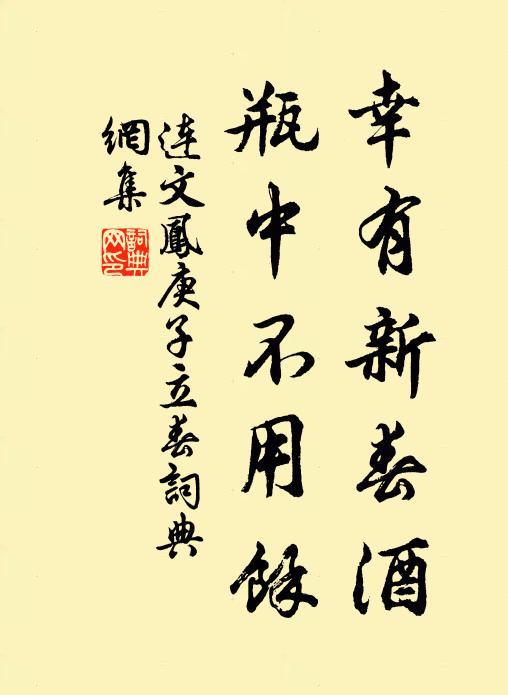 幸有新春酒
瓶中不用餘
連文鳳庚子立春詞典
網集
詞典網印